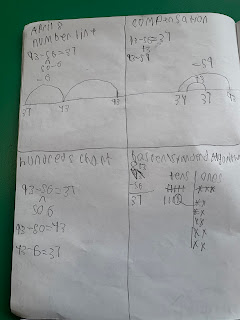 April 8
number line
93-56=37
50 6
-6
37 43 93
compensation
93-56=37
+3
93-59
-59
+3
34 37 93
hundreds chart
93-56=37
50 6
93-50=43
43-6=37
93
-56
37
tens ones